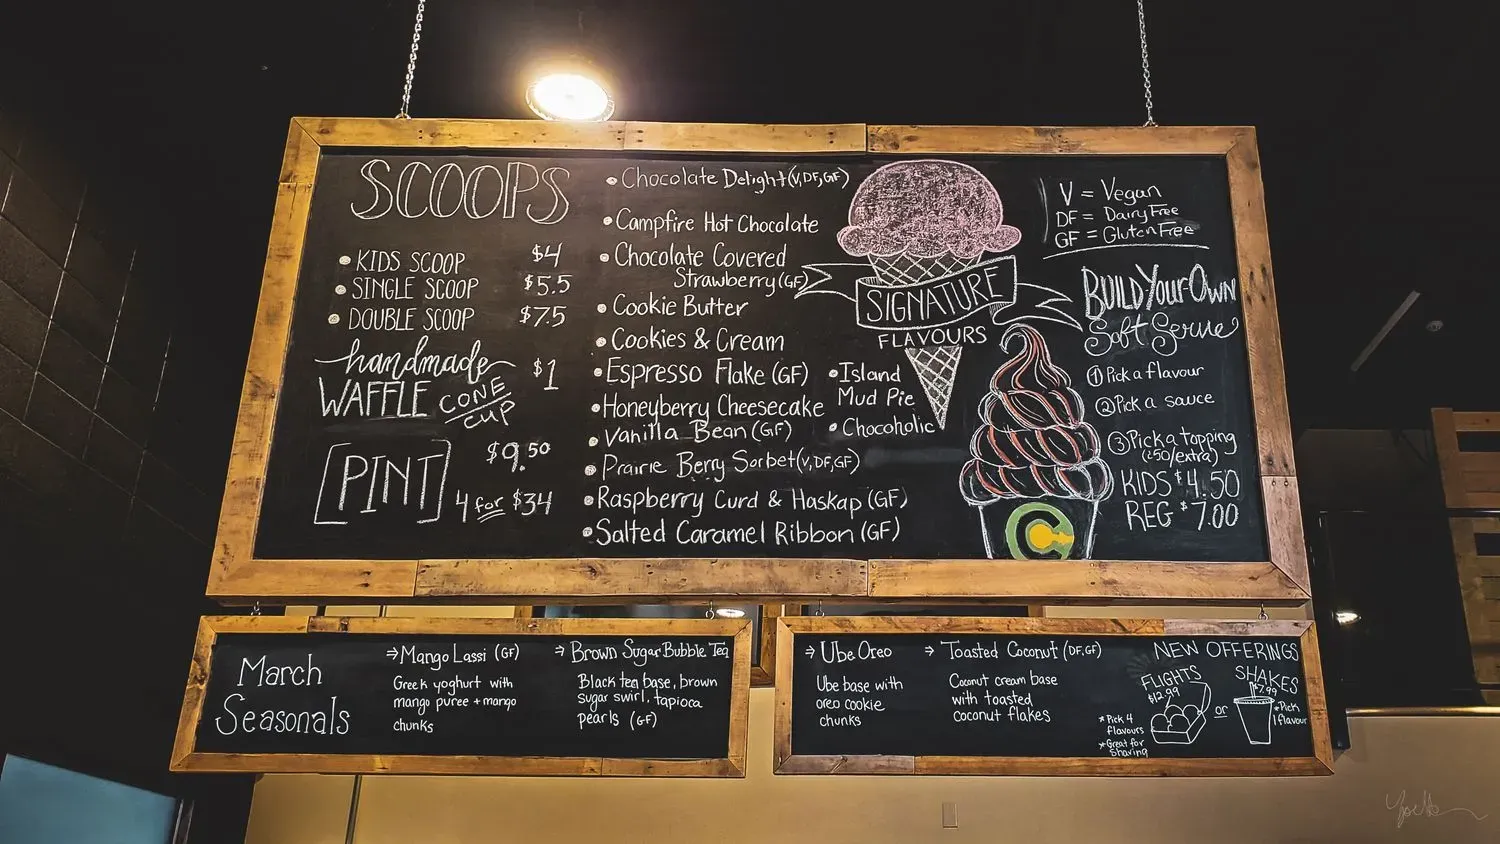 SCOOPS
KIDS SCOOP $4
SINGLE SCOOP $5.5
DOUBLE SCOOP $7.5
handmade
WAFFLE CONE $1
CUP
[PINT] $9.50
4 for $34
Chocolate Delight (V,DF,GF)
Campfire Hot Chocolate
Chocolate Covered
Strawberry (GF)
Cookie Butter
Cookies & Cream
Espresso Flake (GF)
Honeyberry Cheesecake
Vanilla Bean (GF)
Prairie Berry Sorbet (V,DF,GF)
Raspberry Curd & Haskap (GF)
Salted Caramel Ribbon (GF)
Island
Mud Pie
Chocoholic
SIGNATURE
FLAVOURS
V = Vegan
DF = Dairy Free
GF = Gluten Free
BUILD Your Own
Soft Serve
1 Pick a flavour
2 Pick a sauce
3 Pick a topping
(.50/extra)
KIDS $4.50
REG $7.00
March
Seasonals
⇒ Mango Lassi (GF)
Greek yoghurt with
mango puree + mango
chunks
⇒ Brown Sugar Bubble Tea
Black tea base, brown
sugar swirl, tapioca
pearls (GF)
⇒ Ube Oreo
Ube base with
oreo cookie
chunks
⇒ Toasted Coconut (DF,GF)
Coconut cream base
with toasted
coconut flakes
NEW OFFERINGS
FLIGHTS
$12.99
* Pick 4
flavours
* Great for
Sharing
or
SHAKES
$7.99
* Pick
1 flavour